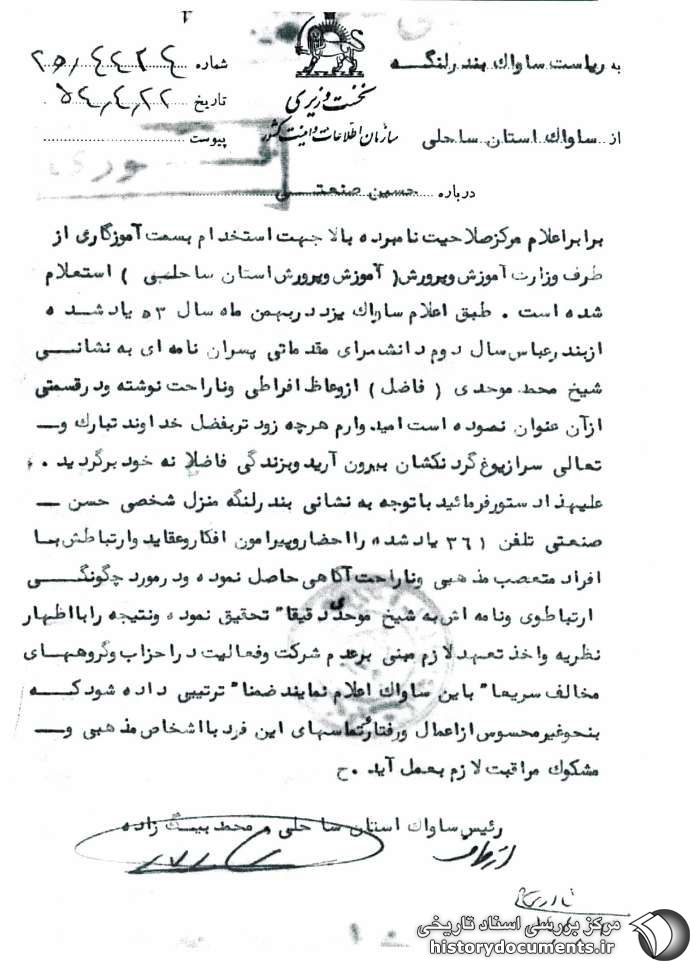 به ریاست ساواک بندرلنگه
شماره ۲۵٫۴۴۲۴
نخست وزیری
تاریخ ۵۴٫۴٫۲۲
سازمان اطلاعات و امنیت کشور
از ساواک استان ساحلی
پیوست
فوری
درباره حسین صنعتی
برابر اعلام مرکز صلاحیت نامبرده بالا جهت استخدام بسمت آموزگاری از
طرف وزارت آموزش وپرورش( آموزش وپرورش استان ساحلی ) استعلام
شده است . طبق اعلام ساواک یزد در بهمن ماه سال ۵۳ یاد شده
از بندرعباس سال دوم دانشسرای مقدماتی پسران نامه ای به نشانی
شیخ محمد موحدی ( فاضل ) از وعاظ افراطی وناراحت نوشته ودرقسمتی
ازآن عنوان نموده است امیدوارم هرچه زود تربفضل خداوند تبارک و
تعالی سرازیوغ گردنکشان بیرون آرید وبزندگی فاضلانه خود برگردید .
علیهذا دستورفرمائید باتوجه به نشانی بندرلنگه منزل شخصی حسن
صنعتی تلفن ۳۶۱ یاد شده را احضاروپیرامون افکاروعقاید وارتباطش با
افراد متعصب مذهبی وناراحت آگاهی حاصل نموده ودرمورد چگونگی
ارتباط وی ونامه اش به شیخ موحدی دقیقا" تحقیق نموده ونتیجه را با اظهار
نظریه واخذ تعهد لازم مبنی برعدم شرکت وفعالیت دراحزاب وگروههای
مخالف سریعا" باین ساواک اعلام نمایند ضمنا" ترتیبی داده شود که
بنحوغیرمحسوس ازاعمال ورفتار وتماسهای این فرد بااشخاص مذهبی و
مشکوک مراقبت لازم بعمل آید . ح
رئیس ساواک استان ساحلی . محمد بیگ زاده
مرکز بررسی اسناد تاریخی
historydocuments.ir